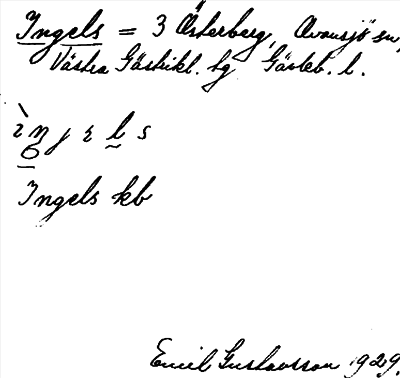 Ingels = 3 Österberg, Ovansjö sn,
Västra Gästrikl. tg Gävleb. l.
ìnjels
Ingels kb
Emil Gustavsson 1929.